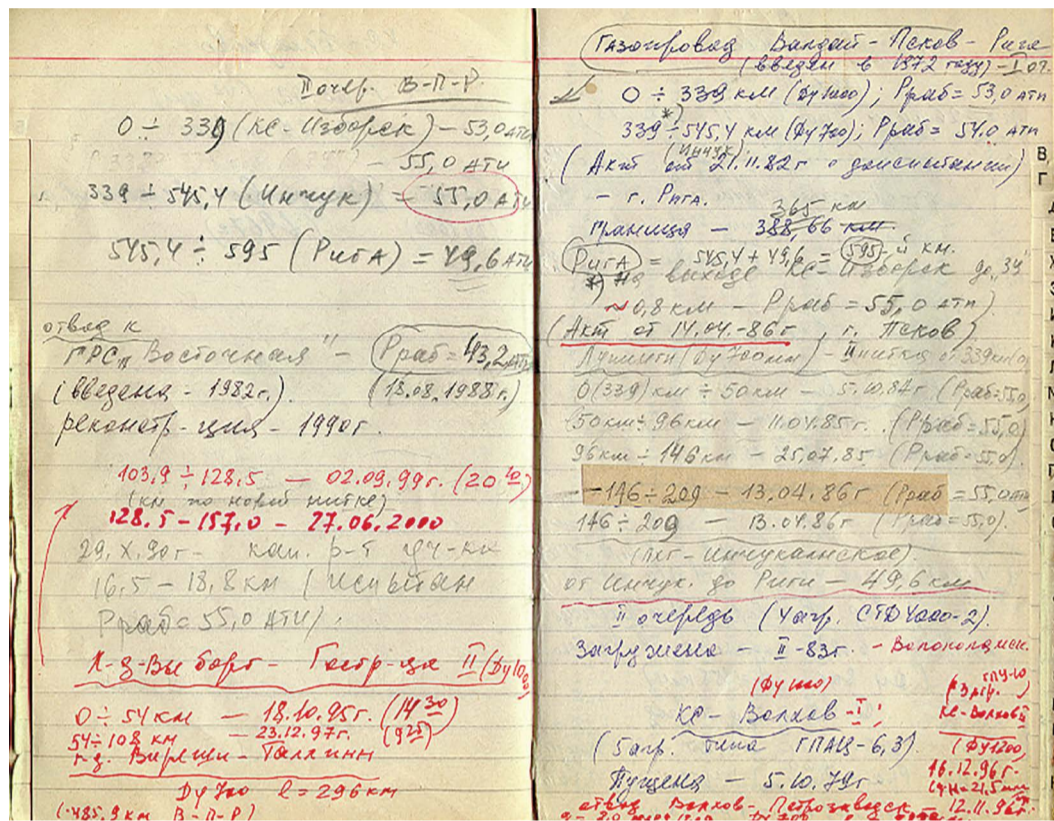 II очер. В-П-Р.
0 ÷ 339 (КС-Изборск) – 53,0 АТИ
– 55,0 АТИ
339 ÷ 545,4 (Инчук) = 55,0 АТИ
545,4 ÷ 595 (Рига) = 49,6 АТИ
отвод к
ГРС "Восточная" – Рраб = 43,2 АТИ
(введена - 1982г.) (18.08.1988г.)
реконстр-ция - 1990г.
103,9 ÷ 128,5 — 02.09.99г. (20 10)
(км по новой нитке)
128.5 – 157.0 – 27.06.2000
29.X.90г – кап. р-т уч-ка
16,5 – 18,8 км (испытан
Рраб = 55,0 АТИ).
Л-д-Выборг – Гостр-ца II (Ду1000)
0 ÷ 54 км — 18.10.95г. (14 30)
54÷108 км — 23.12.97г.
г-д. Вируши - Таллинн
Ду 700 l = 296 км
(485,9 км В-П-Р)
Газопровод Валдай – Псков – Рига
(введен в 1972 году) – I оч.
0 ÷ 339 км (Ду1200); Рраб = 53,0 ати
339 ÷ 545,4 км (Ду 700); Рраб = 54.0 ати
(Инчук)
(Акт от 21.11.82г о доиспытании)
– г. Рига.
365 км
граница – 388,66 км
Рига = 545,4 + 49,6 = 595-й км.
*) на выходе КС-Изборск до
~ 0,8 км – Рраб = 55,0 ати)
(Акт от 14.04.-86г, г. Псков)
Лупинги (Ду 700мм) – II нитка с 339км
0(339) км ÷ 50км – 5.10.84г (Рраб=55,0)
50км ÷ 96км – 11.04.85г. (Рраб = 55,0)
96км ÷ 146км – 25.07.85 (Рраб = 55,0).
–146 ÷ 209 – 13.04.86г (Рраб = 55,0 ати
146 ÷ 209 — 13.04.86г (Рраб = 55,0).
(ПХГ – Инчукалнское).
от Инчук. до Риги – 49,6 км
II очередь (4агр. СТД4000-2).
Загружена – II - 83г. – Волоколамск.
(Ду 1200)
КС – Волхов - I;
(5агр. типа ГПАЦ-6,3).
Пущена – 5.10.79г.
ГПУ-10
(3агр.)
КС-Волхов II
(Ду1200,
16.12.96г.
отвод Волхов – Петрозаводск – 12.11.96г
В,
Г